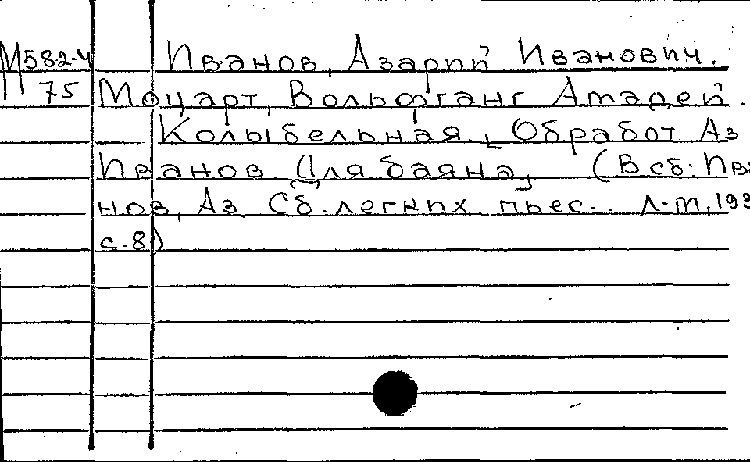 М582-4 Иванов, Азарий Иванович.
75 Моцарт, Вольфганг Амадей.
Колыбельная. [Обработ Аз
Иванов. Для баяна]. (В сб: Ива
нов, Аз. Сб. легких пьес.. Л-М, 193
с.8)